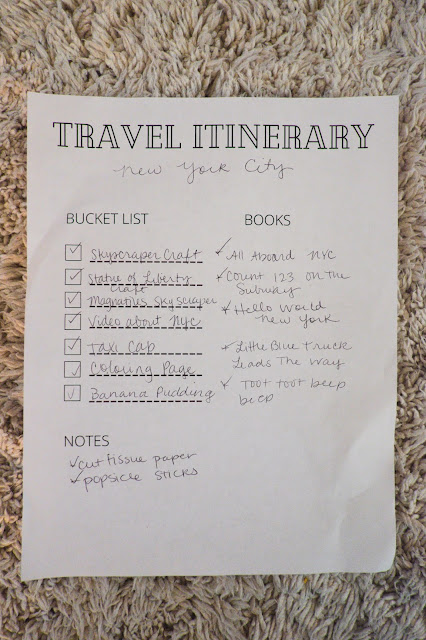 TRAVEL ITINERARY
New York City
BUCKET LIST
Skyscraper Craft
Statue of Liberty
Craft
Magnatiles Skyscraper
Video about NYC
Taxi Cab
Colouring Page
Banana Pudding
BOOKS
All Aboard NYC
Count 123 on the
Subway
Hello World
New York
Little Blue Truck
Leads The Way
Toot toot beep
beep
NOTES
cut tissue paper
popsicle sticks